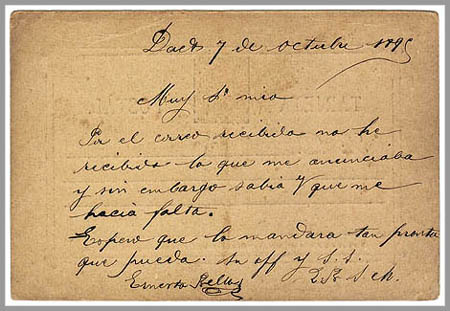 7 de octubre 189
Muy Sr mio
Por el correo recibido no he
recibido lo que me anunciaba
y sin embargo sabia V que me
hacia falta.
Espero que lo mandara tan pronto
que pueda. su aff y s. s.
Ernesto